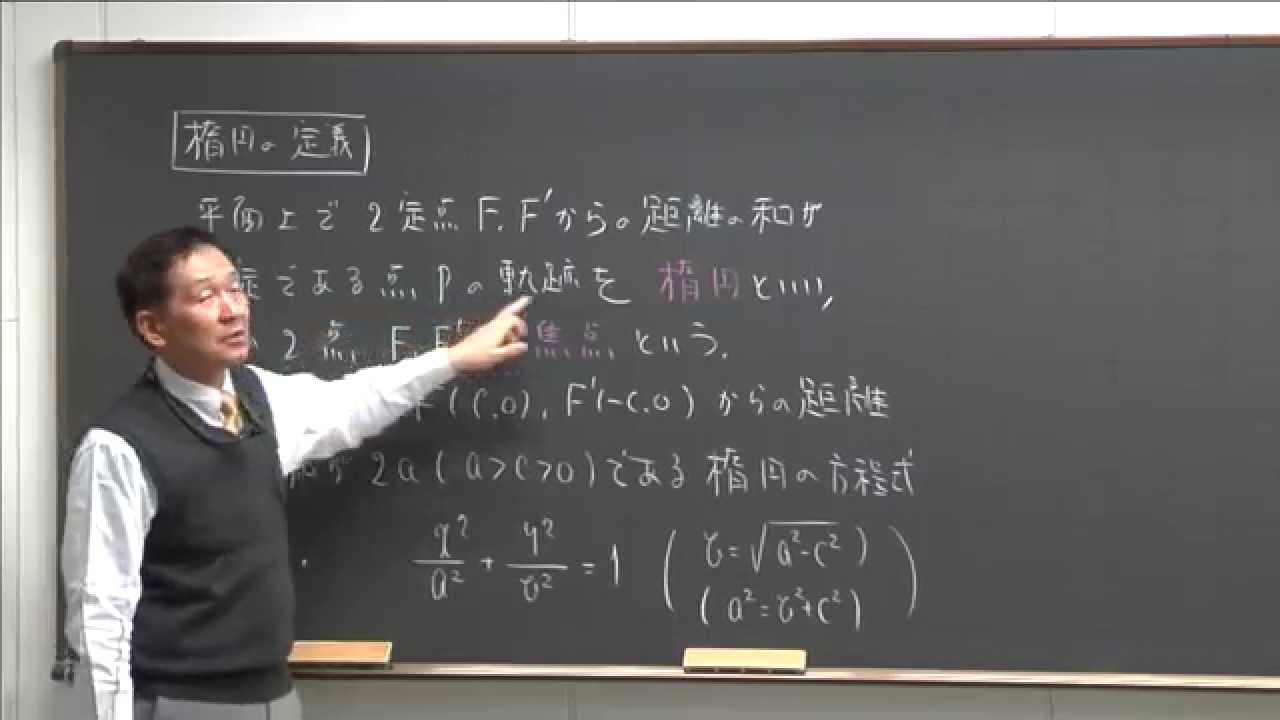 楕円の定義
平面上で 2定点 F, F'からの距離の和が
定である点 Pの軌跡を 楕円といい,
2点 F, F' 焦点 という.
F(c,0), F'(-c,0) からの距離
和が 2a (a>c>0)である 楕円の方程式
x²/a² + y²/b² = 1 ( b=√a²-c² )
( a²=b²+c² )